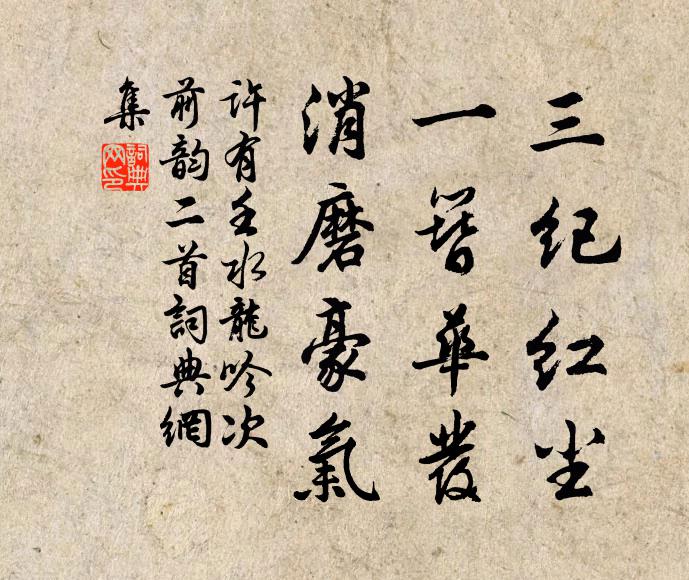 三纪红尘
一簪华發
消磨豪氣
许有壬水龍吟次
前韵二首詞典網
集
詞典
网印